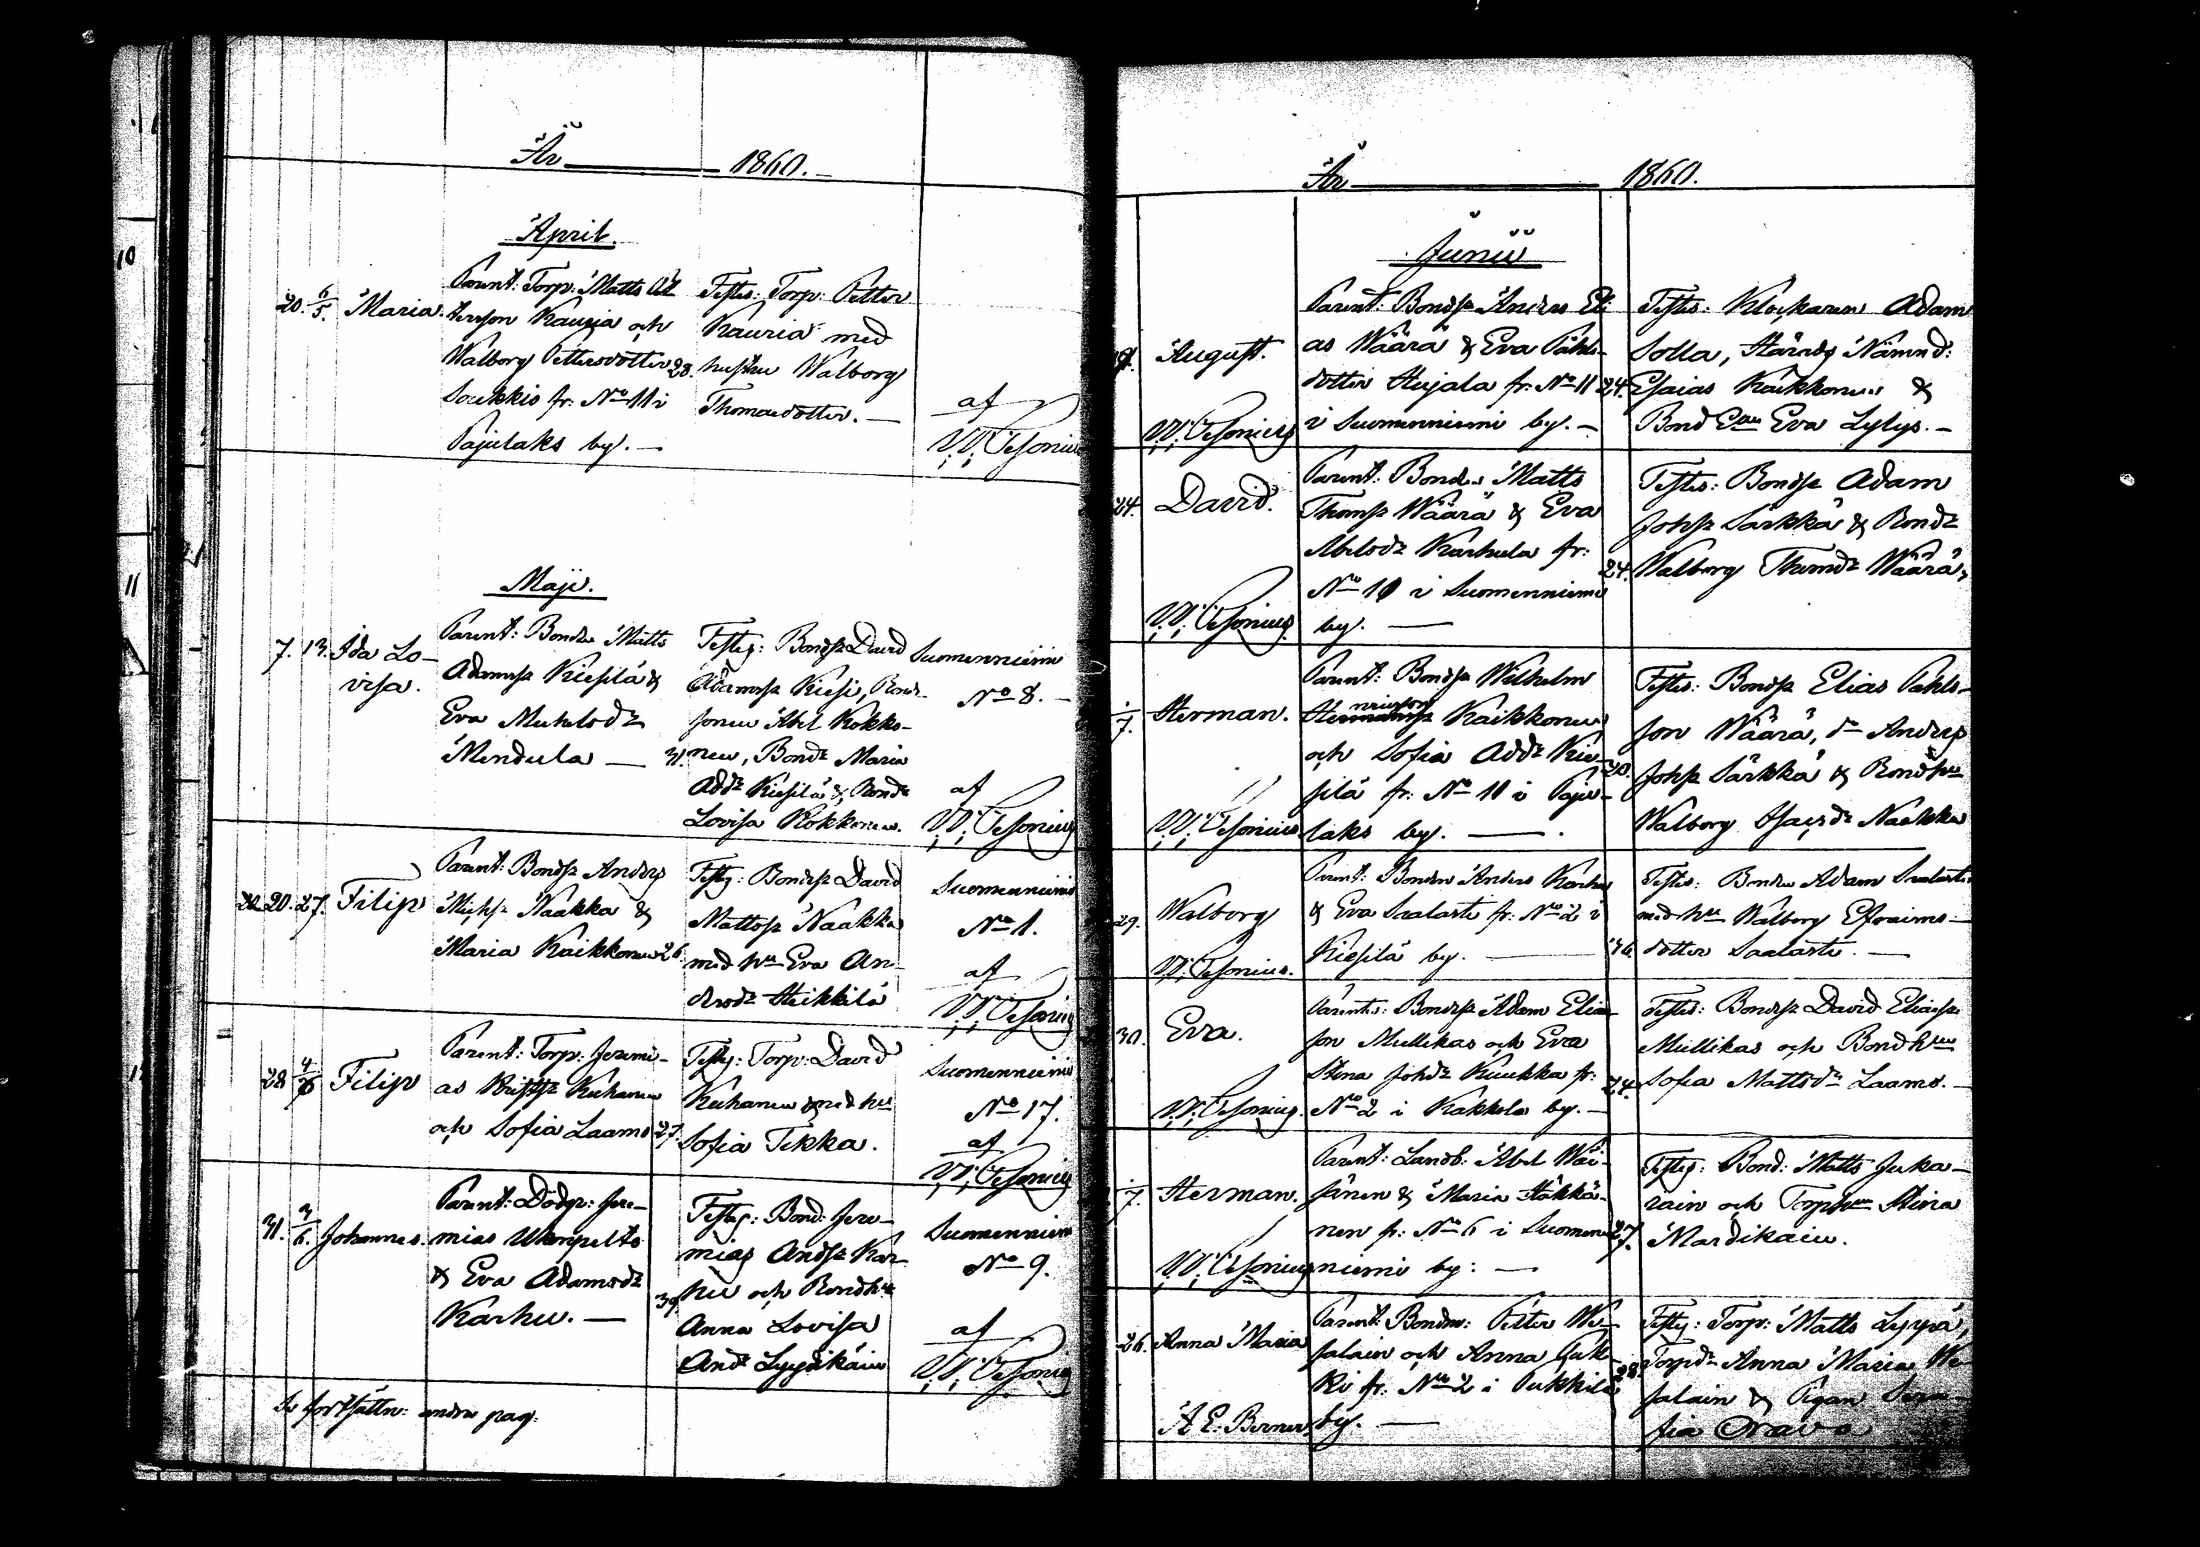 År 1860.
April.
20. 6/5. Maria.
Parent: Torp: Matts Pet
tersson Kauria och
Walborg Pettersdotter 28.
Soukkio fr: No 11 i
Pajulaks by. —
Testes: Torp: Petter
Kauria med
hustru Walborg
Thomasdotter. —
af
W: Cesonius
Maji.
7. 13. Ida Lo-
visa.
Parent: Bonden Matts
Adamss Kiesilä &
Eva
Mendula — 31.
Testes: Bondss David
Adamss Kiesi, Bond-
sonen Abel Kokko-
nen, Bondr Maria
Addr Kiesilä & Bondr
Lovisa Kokkonen.
Suomenniemi
No 8. —
af
W: Cesonius
20. 27. Filip
Parent: Bondss Anders
Michss Naakka &
Maria Kaikkonen 26.
Testes: Bondss David
Mattss Naakka
med hu Eva An-
dersdr Heikkilä
Suomenniemi
No 1.
af
W: Cesonius
28 4/6 Filip
Parent: Torp: Jeremi-
as Kuhanen
och Sofia Laamo 27.
Testes: Torp: David
Kuhanen med hu
Sofia Tikka.
Suomenniemi
No 17.
af
W: Cesonius
31. 3/6. Johannes.
Parent: Dödgr: Jere-
mias Ukonpelto
& Eva Adamsdr
Karhu. — 39.
Testes: Bond: Jere-
mias Andss Kar-
hu och Bondhu
Anna Lovisa
Andr Lyydikäin
Suomenniem
No 9.
af
W: Cesonius
Se fortsättn: andra pag:
År 1860.
Junii
August.
W: Cesonius
Parent: Bondss Anders Eli
as Wäärä & Eva Påhls-
dotter Hujala fr: No 11 24.
i Suomenniemi by. —
Testes: Klockaren Adam
Solla, Härads Nämnd:
Esaias Kaikkonen &
Bond Eva Lylys. —
24. David.
W: Cesonius
Parent: Bonden Matts
Thomss Wäärä & Eva
Abelsdr Karhula fr:
No 10 i Suomenniemi
by. —
24.
Testes: Bondss Adam
Johss Särkkä & Bondr
Walborg Thomdr Wäärä,
7. Herman.
W: Cesonius
Parent: Bondss Wilhelm
Kaikkonen
och Sofia Addr Kie-
silä fr: No 11 i Paju-
laks by. —
20.
Testes: Bondss Elias Påhls-
son Wäärä, d:o Anders
Johss Särkkä & Bondhu
Walborg Naakka
29. Walborg
W: Cesonius.
Parent: Bonden Anders Karhu
& Eva Saalasti fr: No 2 i
Kiesilä by. — 36.
Testes: Bonden Adam Saalasti
med hu Walborg Efraims-
dotter Saalasti. —
30. Eva.
W: Cesonius.
Parentes: Bondss Adam Elias
son Mullikas och Eva
Stina Johdr Kuukka fr:
No 2 i Kakkola by. — 24.
Testes: Bondss David Eliass
Mullikas och Bondhu
Sofia Mattsdr Laamo. —
7. Herman.
W: Cesonius
Parent: Landb: Abel Wäi-
sänen & Maria Häkkä-
nen fr: No 6 i Suomen 27.
niemi by: —
Testes: Bond: Matts Juka-
rain och Torphu Stina
Mardikain.
26. Anna Maria
A E: Berner
Parent: Bondm: Petter We-
salain och Anna Juk-
ki fr: No 2 i Pukkila 28.
by. —
Testes: Torp: Matts Lyyrä,
Torpdr Anna Maria We-
salain & Pigan Sera-
fia Orava